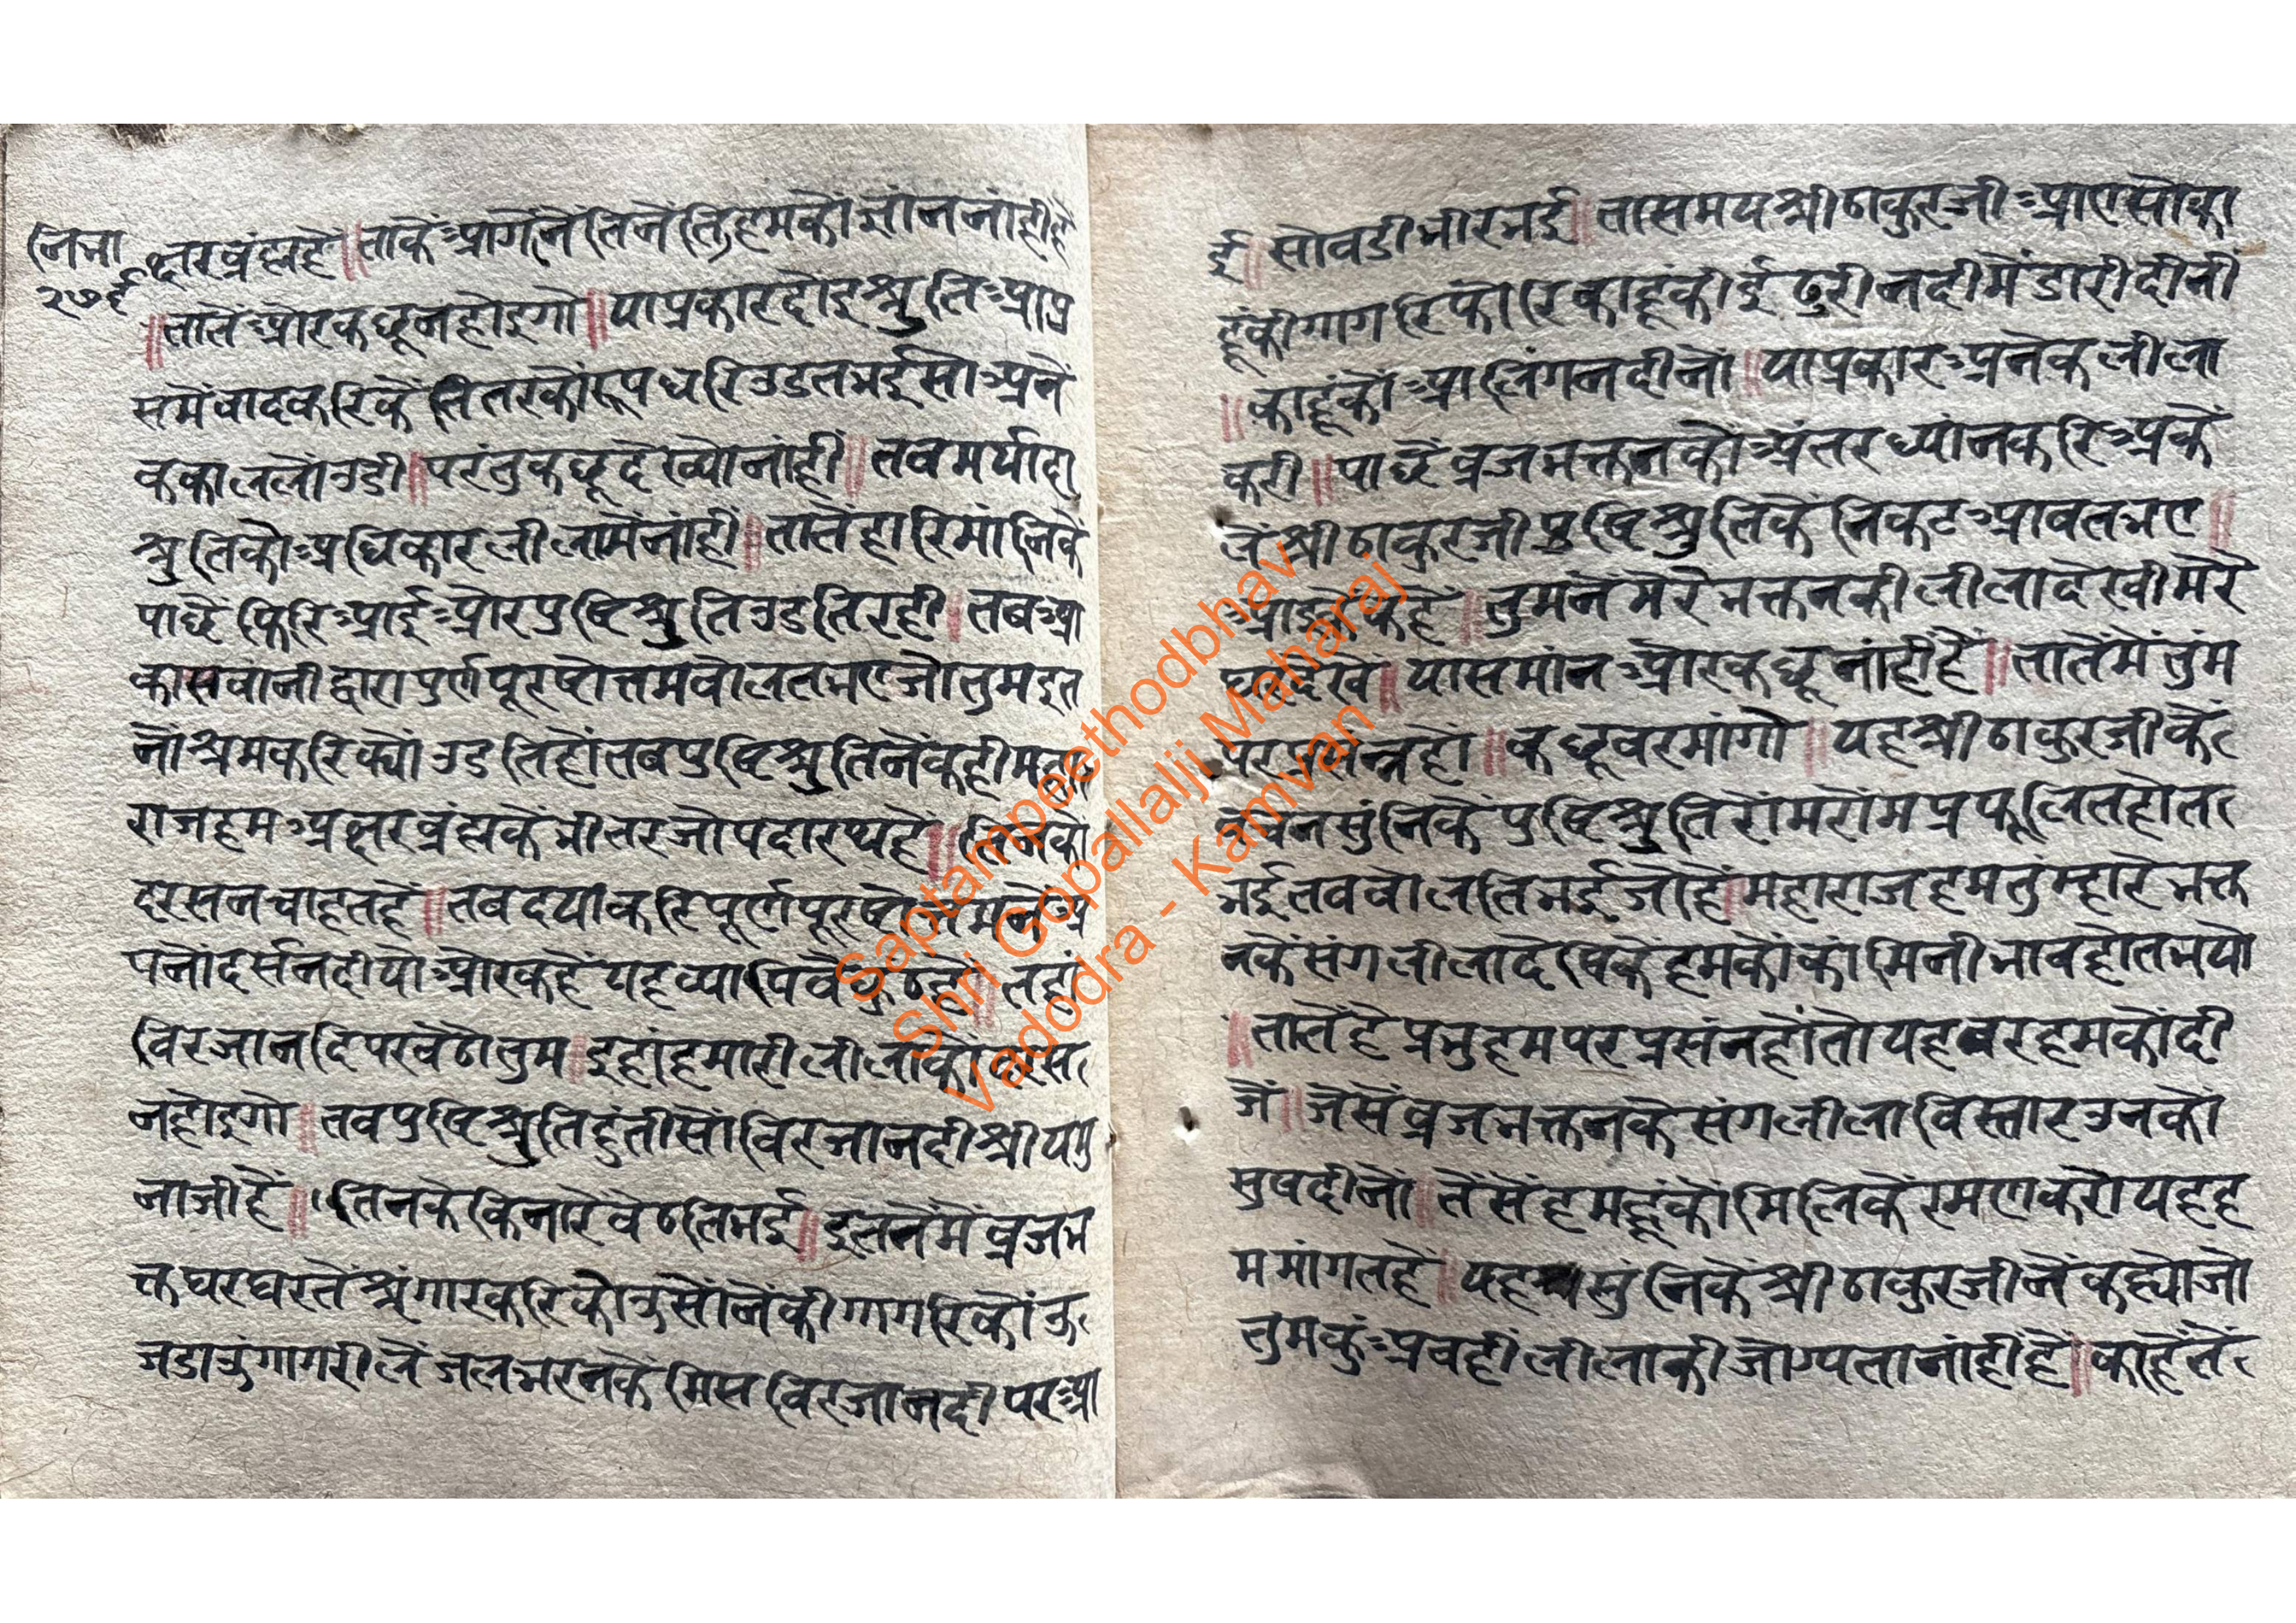 निभा
२७६
क्षरब्रंह्महै॥ताकेंआगेंनेंतिनेंतिहमकोंजांननांहींहै
॥तातेंओरकछूनहोइगो॥याप्रकारदोइश्रुतिआप्र
समेंवादकरिकेंतितरकोंरूपधरिउडतभईसोअने
ककाललोंउडी॥परंतुकछूदेख्योनांहीं॥तबमर्यादा
श्रुतिकोअधिकारलीलामेंनांहीं॥तातेंहारिमांनिकें
पाछेंफिरिआईओरपुष्टिश्रुतिउडतिरही॥तबआ
कासवांनीद्वारापुर्णपूरषोत्तमबोलतभएजोतुमइत
नोंश्रमकरिक्योंउडतिहोंतबपुष्टिश्रुतिनेंकहीमहा
राजहमअक्षरब्रंह्मकेंभीतरजोपदारथहे॥तिनको
दरसनचाहतहें॥तबदयाकरिपूर्णपूरषोत्तमनेंअ
पनोंदर्सनदीयोओरकहेंयहव्यापिवैकुंठहै॥तहां
विरजानदिपरबैठोतुम॥इहांहमारीलीलाकोदरस
नहोइगो॥तबपुष्टिश्रुतिहुंतीसोविरजानदीश्रीयमु
नाजीहें॥तिनकेकिनारेबैठतिभई॥इतनेंमेंब्रजभ
क्तघरघरतेंश्रृंगारकरिकोउसोंनेंकीगागरिकोंउ
जडाउगागरीलेंजलभरनकेंमिसविरजानदीपरआ
ई॥सोबडीभीरभई॥तासमयश्रीठाकुरजीआएसोका
हूंकीगागरिफोरिकाहूंकीईढुरीनदीमेंडारीदीनी
॥काहूंकोंआलिंगनदीनों॥याप्रकारअनेकलीला
करी॥पाछेंब्रजभक्तनकोंअंतरध्यांनकरिअके
लेंश्रीठाकुरजीपुष्टिश्रुतिकेंनिकटआवतभए॥
आइकेकहें॥तुमनेंमेरेभक्तनकीलीलादेखीमेरे
घरदेखे॥यासमांनओरकछूनांहींहें॥तातेंमेंतुंम
परप्रसंन्नहों॥कछूवरमांगो॥यहश्रीठाकुरजीकें
वचनसुंनिकेंपुष्टिश्रुतिरोंमरोंमप्रफूलितहोत
भईतबबोलतिभईजोहें॥महाराजहमतुम्हारेभक्त
नकेंसंगलीलादेखिकेंहमकोंकांमिनीभावहोतभयो
॥तातेंहेप्रभुहमपरप्रसंनहोंतोयहबरहमकोंदी
जें॥जेसेंब्रजभक्तनकेसंगलीलाविस्तारउनकों
सुषदीनों॥तेंसेंहमहूंकोंमिलिकेंरमणकरोयहह
ममांगतहें॥यहसुंनिकेंश्रीठाकुरजीनेंकह्योजो
तुमकुंअबहीलीलाकीजोग्यतानांहींहें॥काहेतें
Saptampeethodbhav
Shri Gopallalji Maharaj
Vadodra - Kamvan